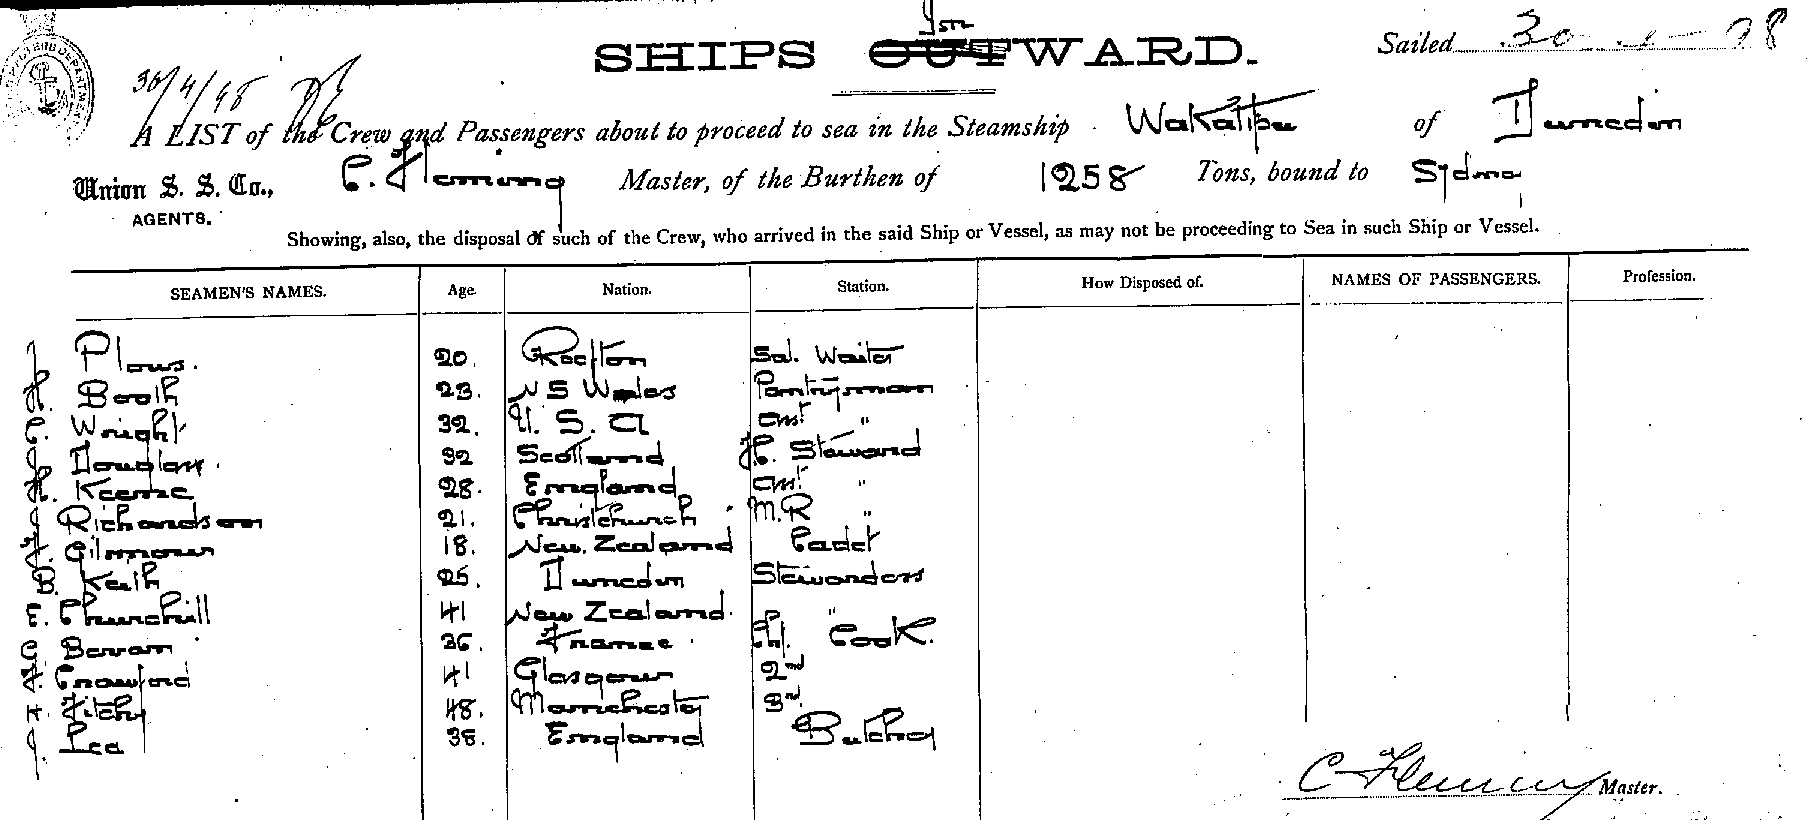 SHIPS OUTWARD.
Sailed 30
30/4/98
A LIST of the Crew and Passengers about to proceed to sea in the Steamship Wakatipu of Dunedin
Union S. S. Co., C. Fleming Master, of the Burthen of 1258 Tons, bound to Sydney
AGENTS.
Showing, also, the disposal of such of the Crew, who arrived in the said Ship or Vessel, as may not be proceeding to Sea in such Ship or Vessel.
SEAMEN'S NAMES. Age. Nation. Station. How Disposed of. NAMES OF PASSENGERS. Profession.
J Plows. 20. Reefton Sal. Waiter
H. Booth 23. N S Wales Pantryman
C. Wright 32. U. S. A ant "
J Douglas. 32 Scotland F.C. Steward
H. Keene 28. England ant "
J Richardson 21. Christchurch M.R "
F. Gilmour 18. New Zealand Cadet
B. Keith 25. Dunedin Stewardess
E. Churchill 41 New Zealand. "
C Bevan 36. France Chf. Cook.
F. Crawford 41 Glasgow 2nd
H. Fitchy 48. Manchester 3rd
J. Lee 38. England Butcher
C Fleming Master.